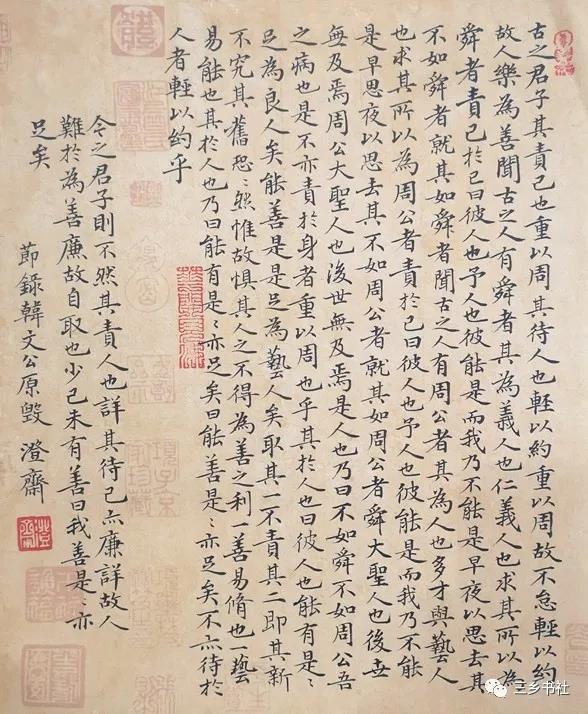 古之君子其責己也重以周其待人也輕以約重以周故不怠輕以約
故人樂為善聞古之人有舜者其為義人也仁義人也求其所以為
舜者責己於己曰彼人也予人也彼能是而我乃不能是早夜以思去其
不如舜者就其如舜者聞古之人有周公者其為人也多才與藝人
也求其所以為周公者責於己曰彼人也予人也彼能是而我乃不能
是早思夜以思去其不如周公者就其如周公者舜大聖人也後世
無及焉周公大聖人也後世無及焉是人也乃曰不如舜不如周公吾
之病也是不亦責於身者重以周也乎其於人也曰彼人也能有是〻
足為良人矣能善是是足為藝人矣取其一不責其二即其新
不究其舊恐〻然惟故懼其人之不得為善之利一善易脩也一藝
易能也其於人也乃曰能有是〻亦足矣曰能善是〻亦足矣不亦待於
人者輕以約乎
今之君子則不然其責人也詳其待己亦廉詳故人
難於為善廉故自取也少己未有善曰我善是〻亦
足矣
節錄韓文公原毀 澄齋
澄齋
三乡书社